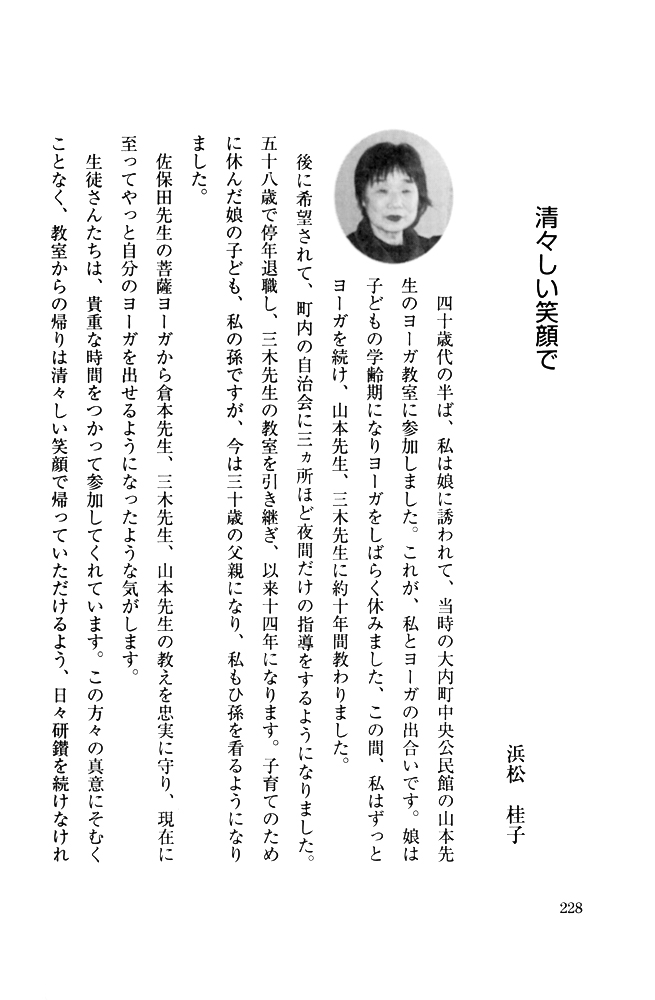 清々しい笑顔で
浜松　桂子
四十歳代の半ば、私は娘に誘われて、当時の大内町中央公民館の山本先
生のヨーガ教室に参加しました。これが、私とヨーガの出合いです。娘は
子どもの学齢期になりヨーガをしばらく休みました、この間、私はずっと
ヨーガを続け、山本先生、三木先生に約十年間教わりました。
後に希望されて、町内の自治会に三ヵ所ほど夜間だけの指導をするようになりました。
五十八歳で停年退職し、三木先生の教室を引き継ぎ、以来十四年になります。子育てのため
に休んだ娘の子ども、私の孫ですが、今は三十歳の父親になり、私もひ孫を看るようになり
ました。
佐保田先生の菩薩ヨーガから倉本先生、三木先生、山本先生の教えを忠実に守り、現在に
至ってやっと自分のヨーガを出せるようになったような気がします。
生徒さんたちは、貴重な時間をつかって参加してくれています。この方々の真意にそむく
ことなく、教室からの帰りは清々しい笑顔で帰っていただけるよう、日々研鑽を続けなけれ
228